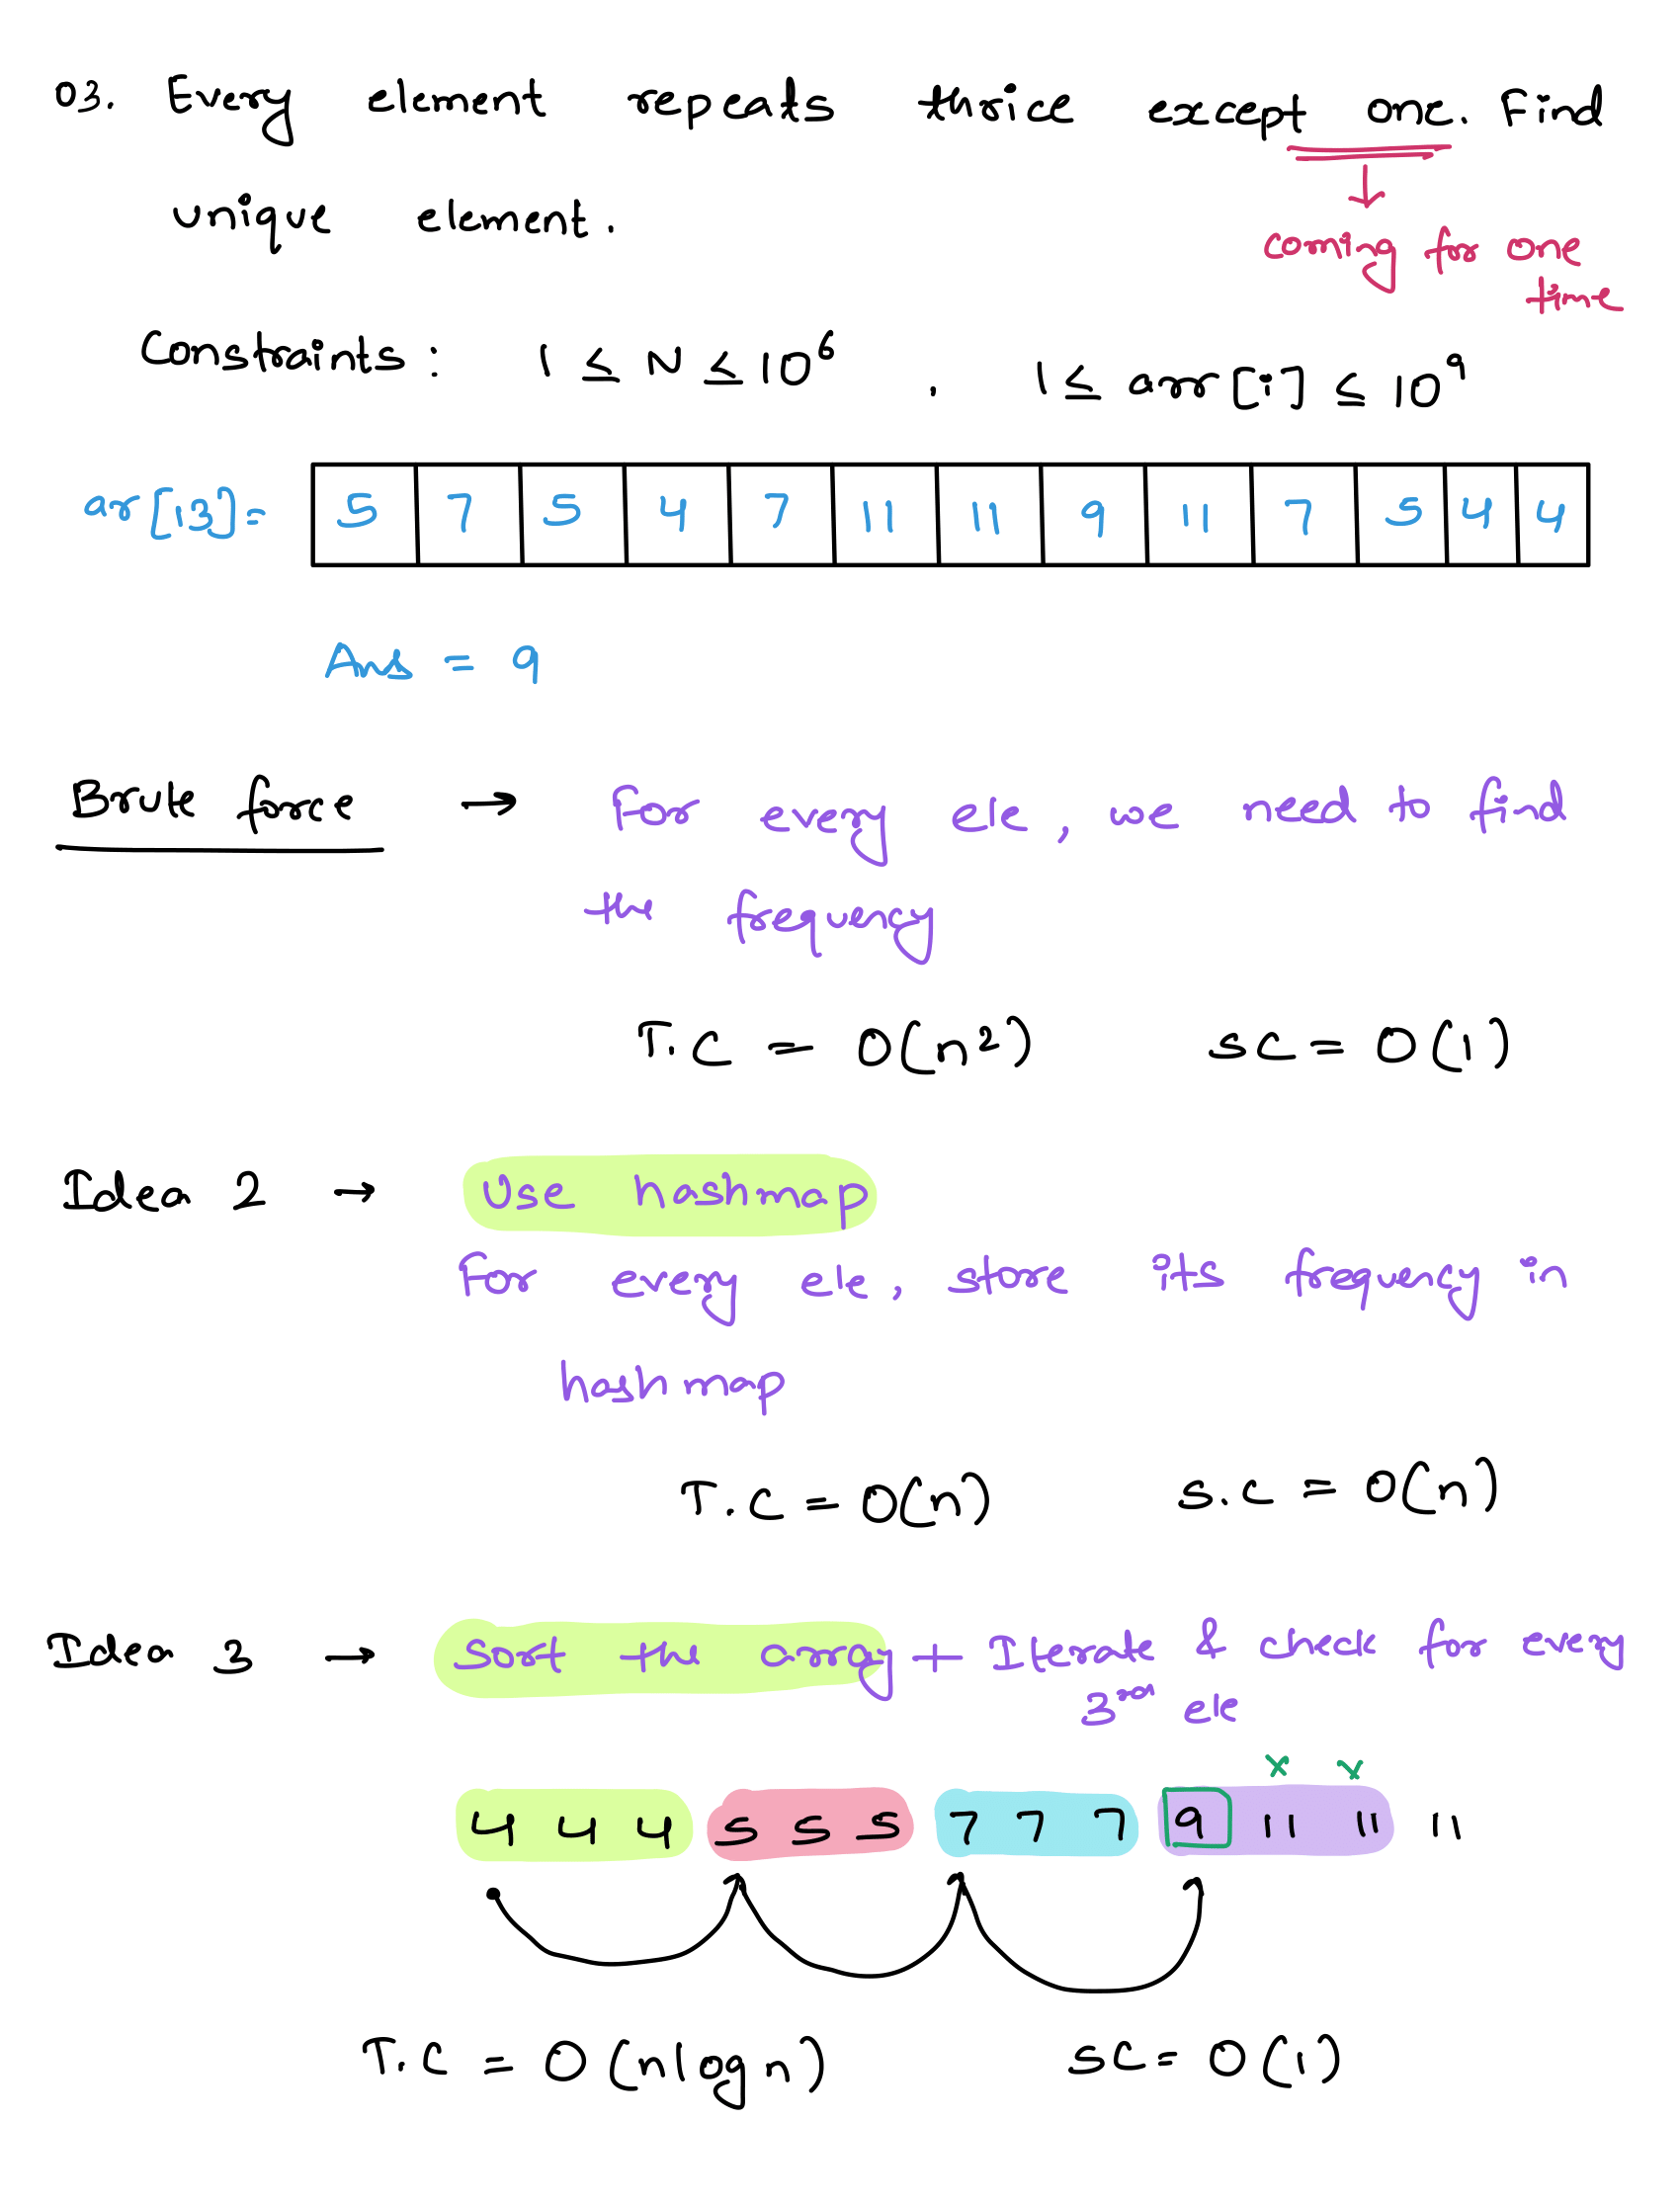 03. Every element repeats thrice except one. Find
unique element.
coming for one
time
Constraints : 1 ≤ N ≤ 10^6 , 1 ≤ arr[i] ≤ 10^9
ar[13] = 5 7 5 4 7 11 11 9 11 7 5 4 4
Ans = 9
Brute force → For every ele, we need to find
the frequency
T.C = O(n²) SC = O(1)
Idea 2 → Use hashmap
For every ele, store its frequency in
hashmap
T.C = O(n) S.C = O(n)
Idea 3 → Sort the array + Iterate & check for every
3rd ele
x x
4 4 4 5 5 5 7 7 7 9 11 11 11
T.C = O(nlogn) SC = O(1)